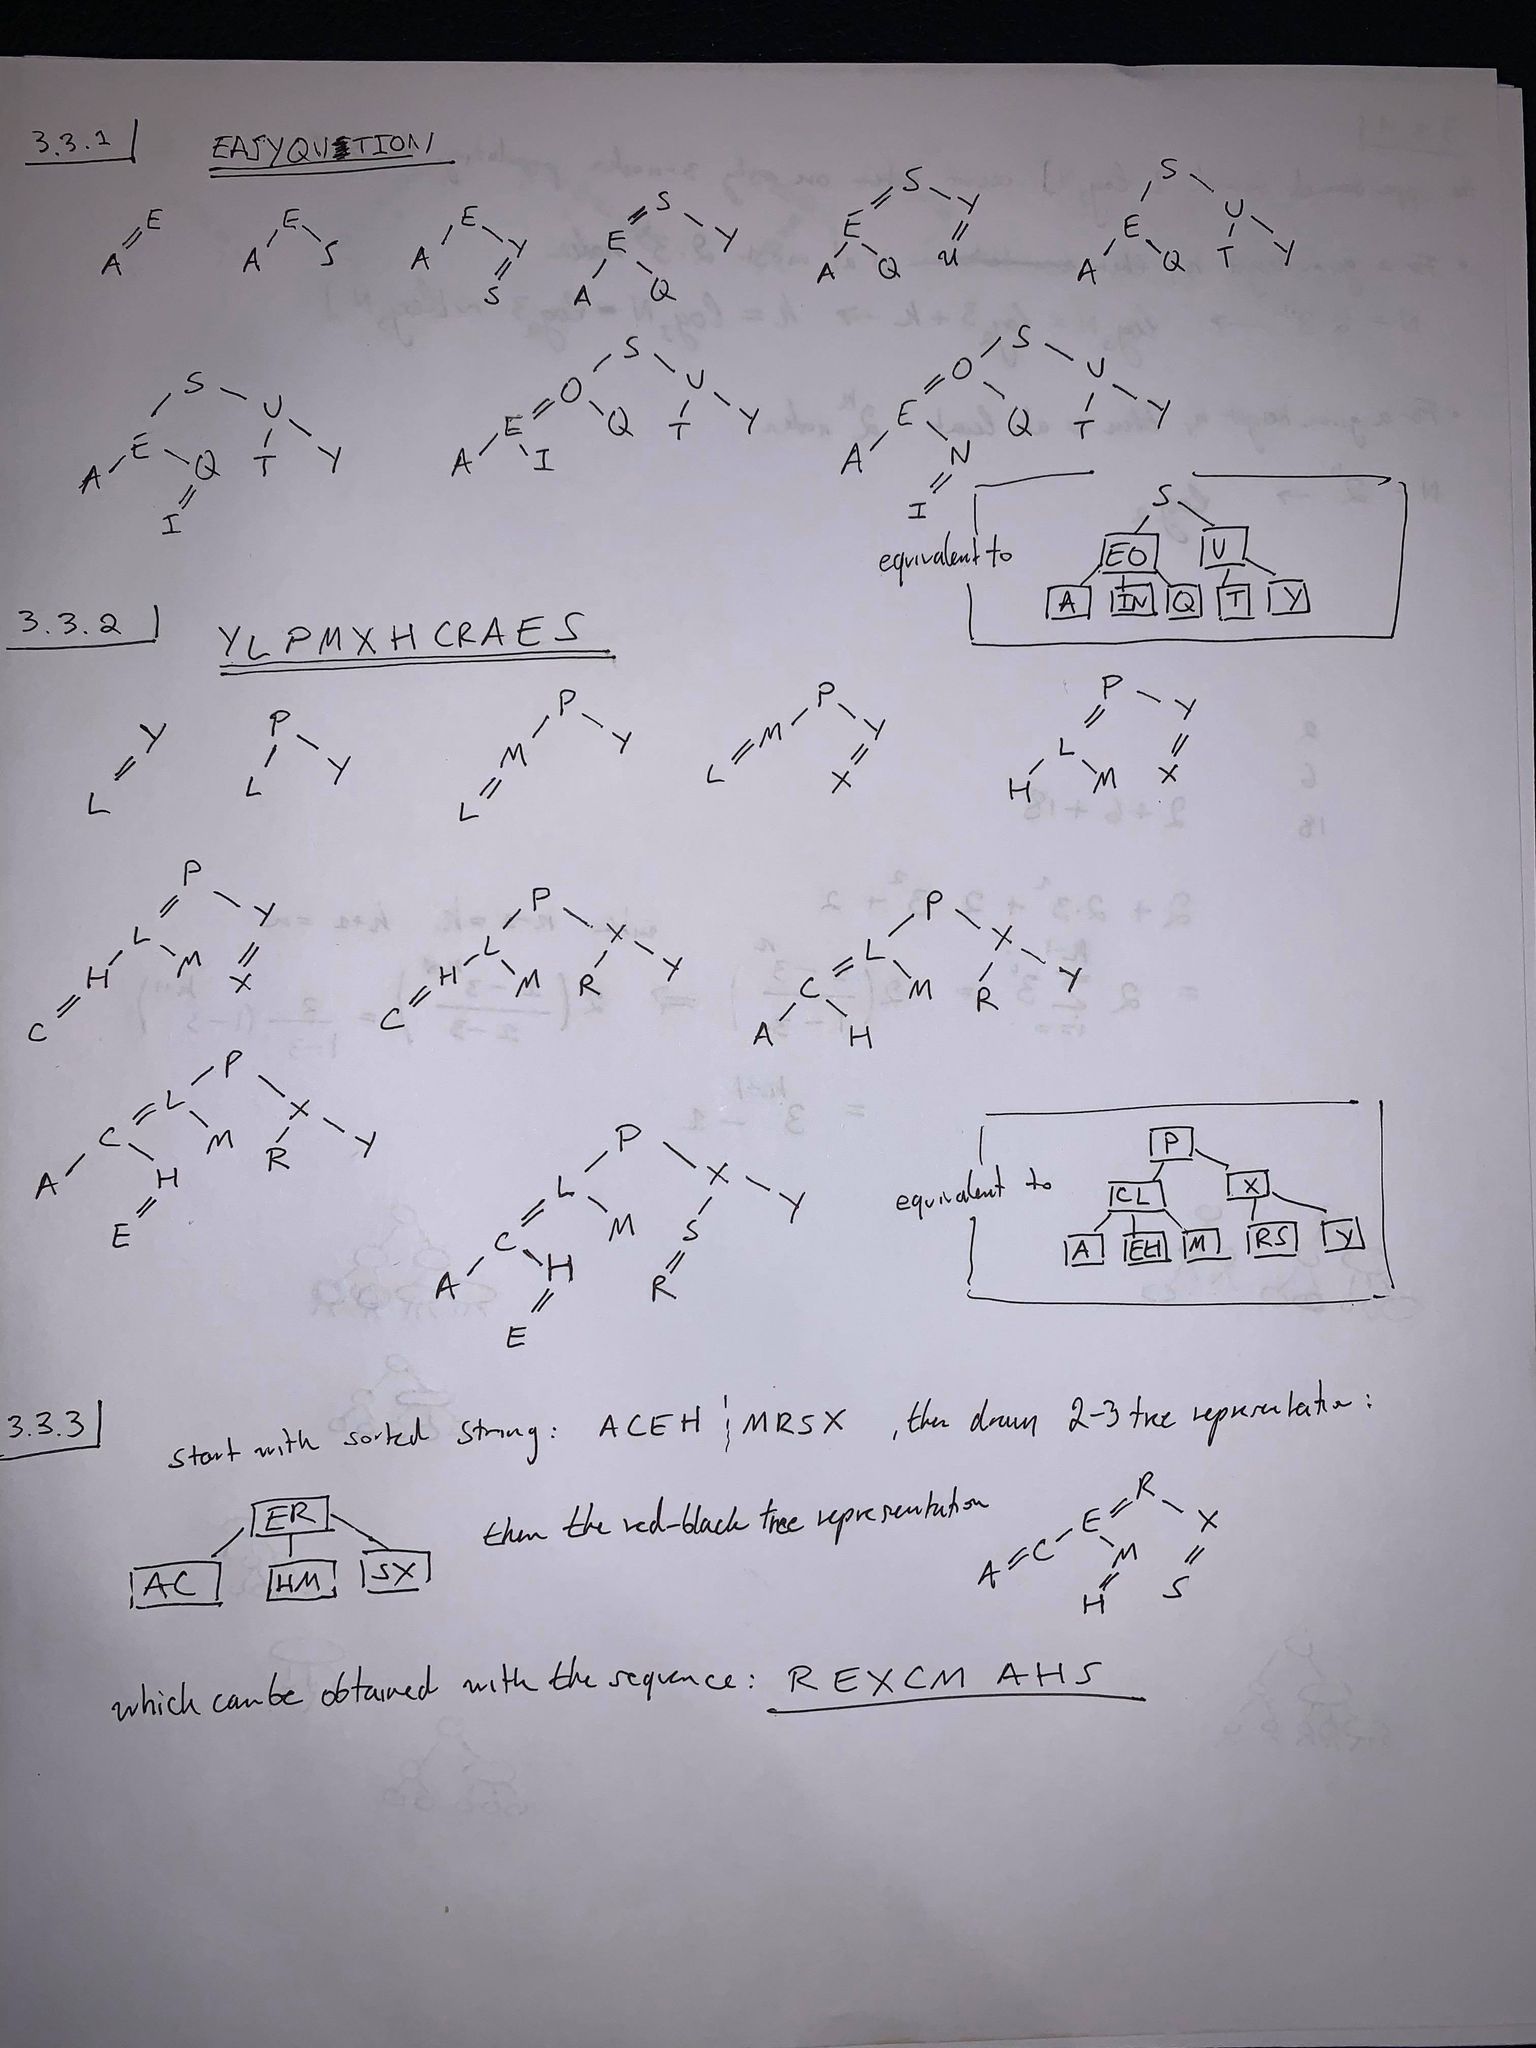 3.3.1 EASYQUSTION
E S S S
A E E E S Y E Y E U
A S A Y A Q A Q U A Q T Y
S
S S S
E U O U O U
A Q T Y E Q T Y E Q T Y
I A I A N
I
equivalent to
S
EO U
A IN Q T Y
3.3.2 YLPMXHCRAES
Y P P P P Y
L L Y M Y L M Y L X
L X H M
P P P
L Y L X L X
H M X H M R Y C M R Y
C C A H
P
L X
C M R Y
A H
E
P
L X
C M S Y
A H R
E
equivalent to
P
CL X
A EH M RS Y
3.3.3 start with sorted string: ACEH ¦ MRSX , then draw 2-3 tree representation:
ER
AC HM SX
then the red-black tree representation
R
E X
A C M S
H
which can be obtained with the sequence: REXCM AHS